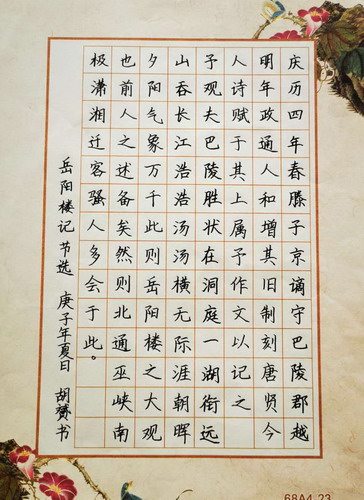 庆历四年春滕子京谪守巴陵郡越
明年政通人和增其旧制刻唐贤今
人诗赋于其上属予作文以记之
予观夫巴陵胜状在洞庭一湖衔远
山吞长江浩浩汤汤横无际涯朝晖
夕阳气象万千此则岳阳楼之大观
也前人之述备矣然则北通巫峡南
极潇湘迁客骚人多会于此。
岳阳楼记 节选 庚子年夏日 胡赟书
68A4-23